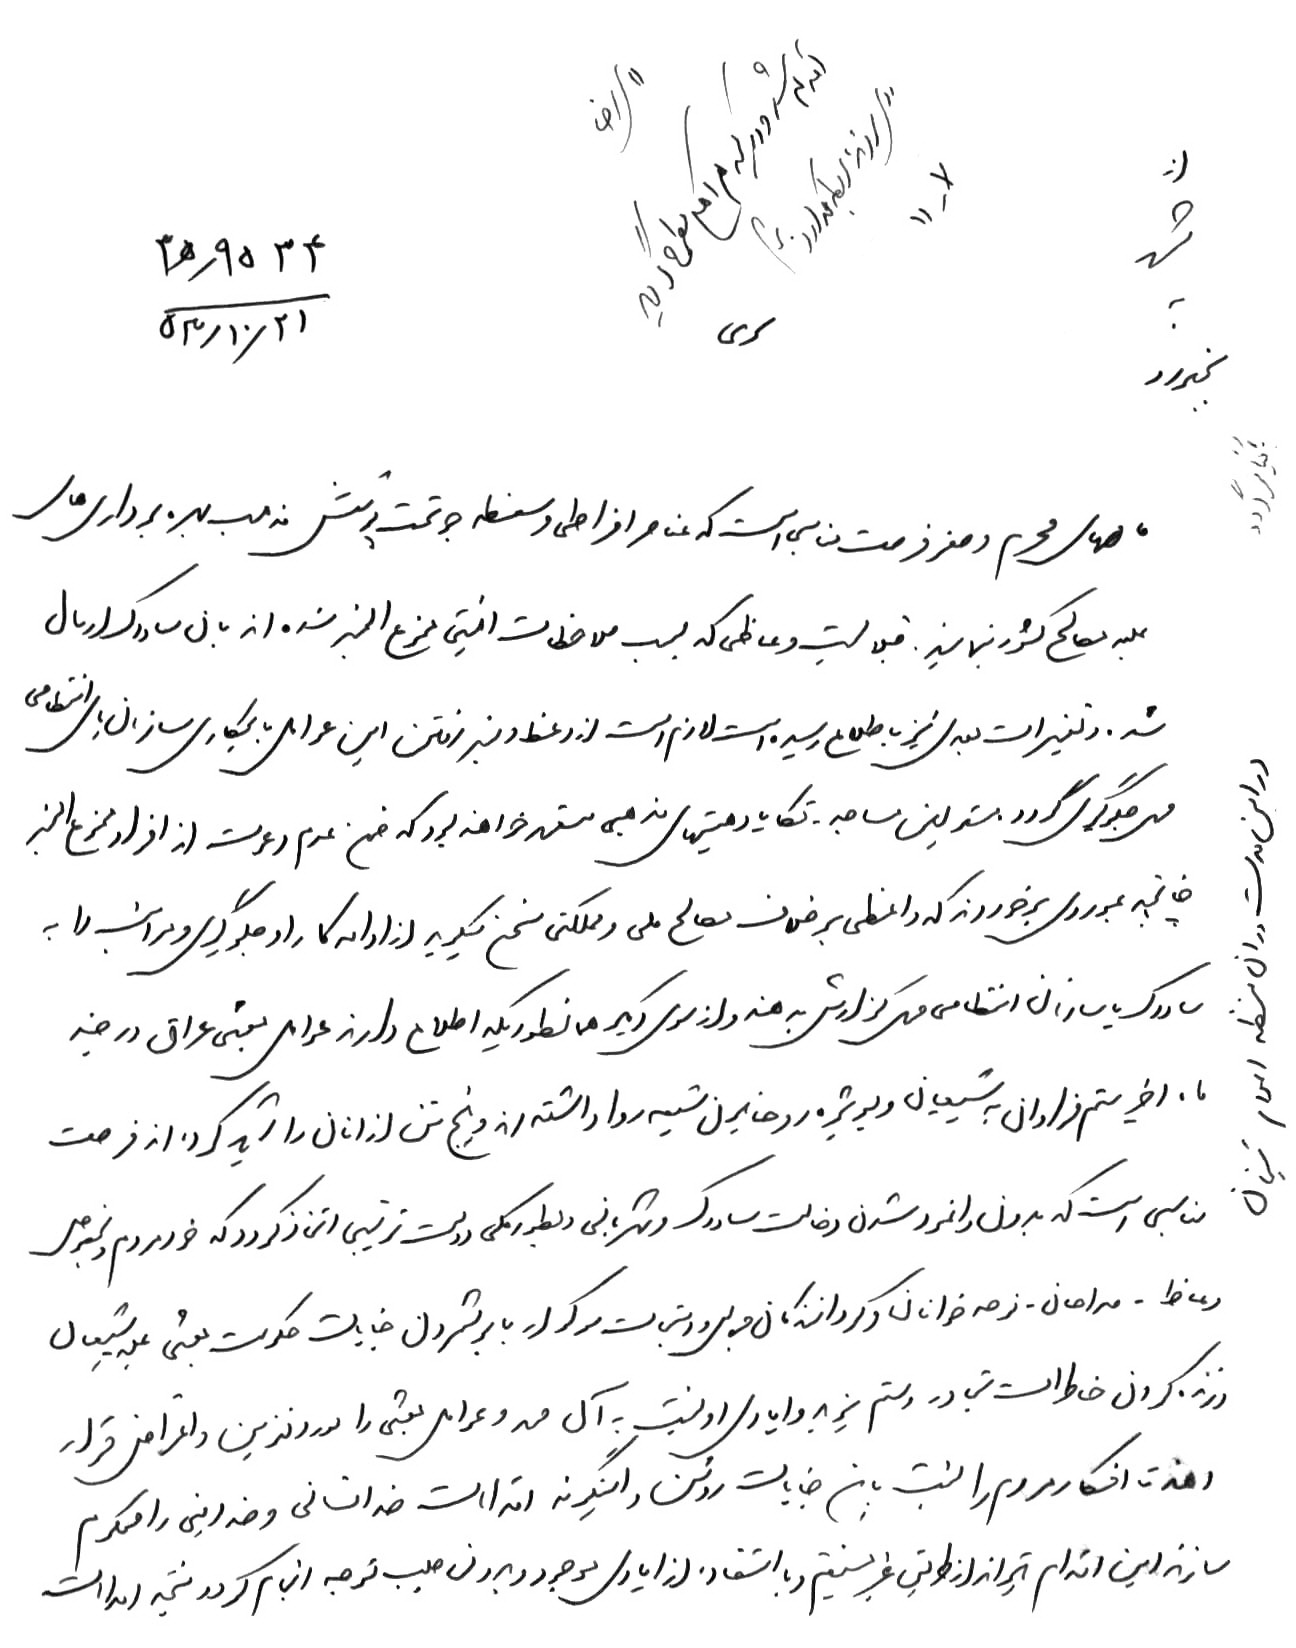 از
مشهد
به
بجنورد
۳۵ر۹۵۳۴
۵۳٫۱۰٫۲۱
سری
ماههای محرم و صفر فرصت مناسبی است که عناصر افراطی و سفسطه جو تحت پوشش مذهب بهره برداری هائی
علیه مصالح کشور بنمایند. قبلا لیست وعاظی که بسبب ملاحظات امنیتی ممنوع المنبر شده اند بان ساواک ارسال
شده و تغییرات بعدی نیز باطلاع رسیده است لازم است از وعظ و منبر رفتن این عوامل با همکاری سازمان های انتظامی
محل جلوگیری گردد. مسئولین مساجد - تکایا و هیئتهای مذهبی متعهد خواهند بود که ضمن عدم دعوت از افراد ممنوع المنبر
چنانچه بموردی برخوردند که واعظی بر خلاف مصالح ملی و مملکتی سخن میگوید از ادامه کار او جلوگیری و مراتب را به
ساواک یا سازمان انتظامی محل گزارش بدهند و از سوی دیگر همانطوریکه اطلاع دارند عوامل بعثی عراق در چند
ماه اخیر ستم فراوانی به شیعیان و بویژه روحانیون شیعه روا داشته اند و پنج تن از آنان را شهید کرده اند فرصت
مناسبی است که بدون وانمود شدن دخالت ساواک و شهربانی و بطور کلی دولت ترتیبی اتخاذ گردد که خود مردم و بخصوص
وعاظ - مداحان - نوحه خوانان و گردانندگان مجالس و دستجات سوگوار با برشمردن جنایات حکومت بعثی علیه شیعیان
و زنده کردن خاطرات ظلم و ستم یزید و ایادی او نسبت به آل محمد عوامل بعثی را مورد نفرین و اعتراض قرار
دهند تا افکار مردم را نسبت باین جنایات روشن و اینگونه اقدامات ضد انسانی و ضد دینی را محکوم
سازند این اقدام میتواند از طریق غیر مستقیم و با استفاده از ایادی موجود و بدون جلب توجه انجام گردد نتیجه اقدامات
در این مدت در آن منطقه اعلام